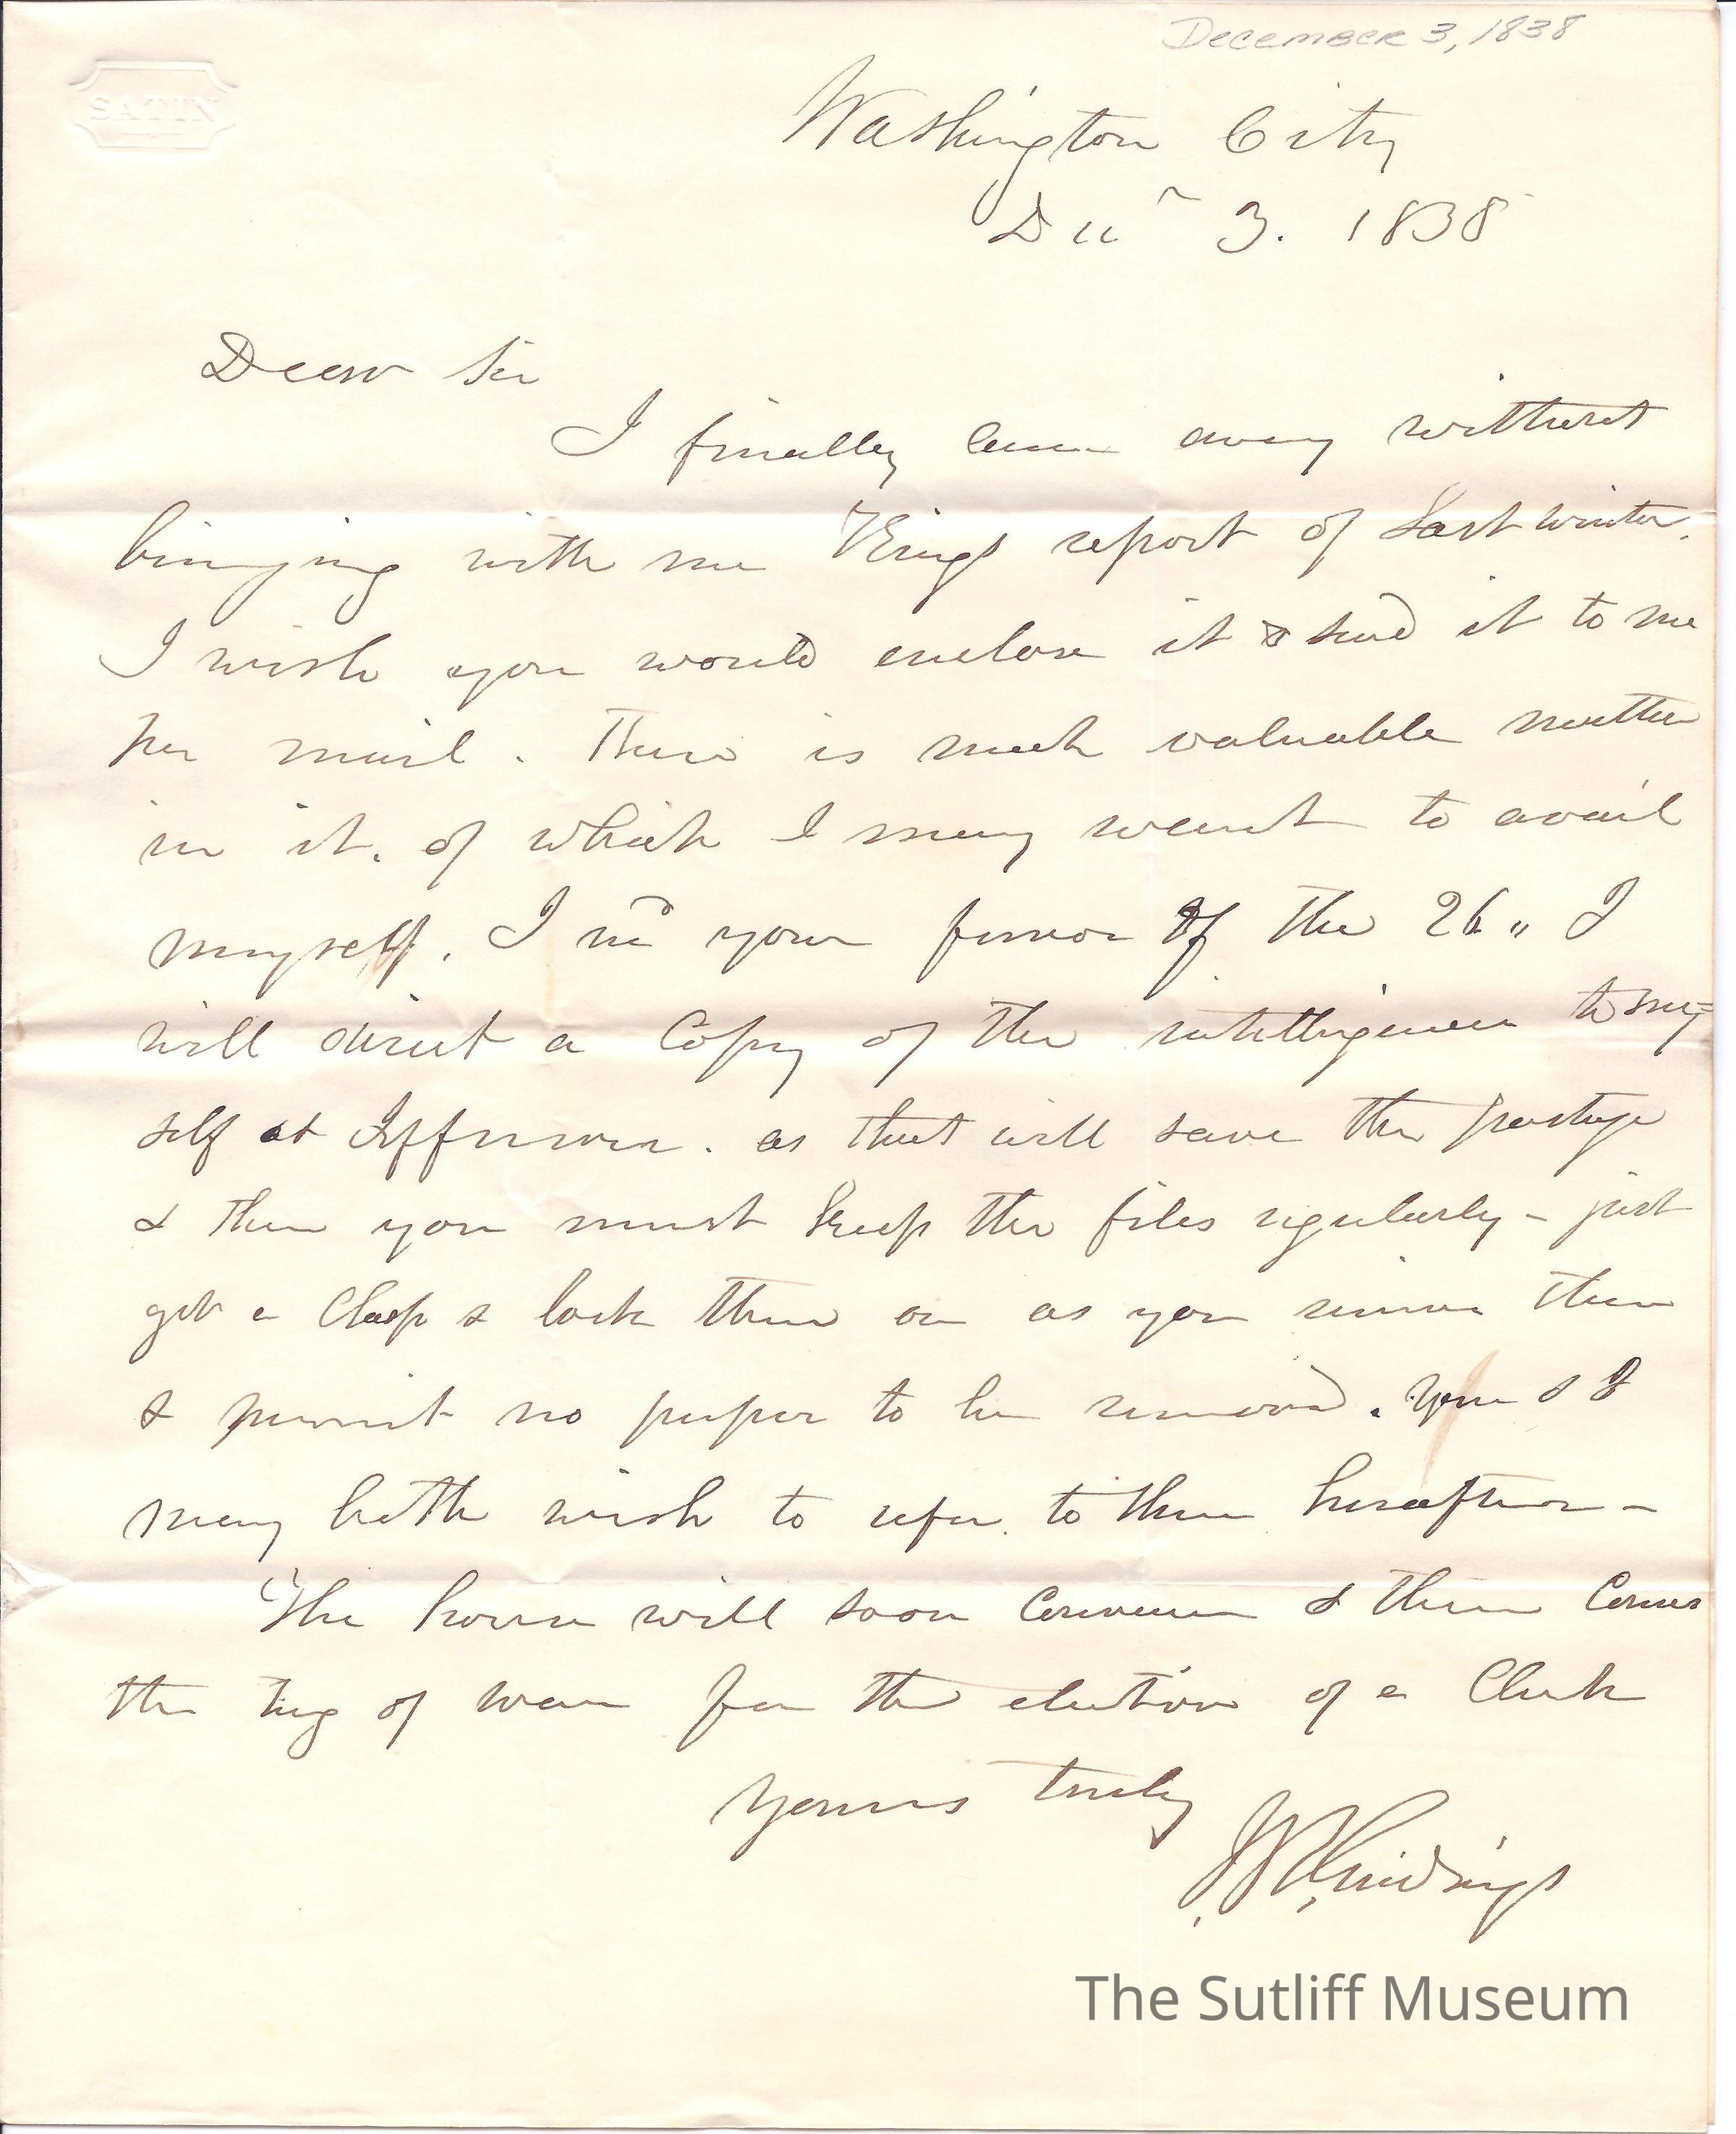 December 3, 1838
SATIN
Washington City
Decr 3. 1838
Dear Sir
I finally came away without
bringing with me Kings report of Last winter.
I wish you would enclose it & send it to me
per mail. There is much valuable matter
in it. of which I may want to avail
myself. I recd your favor of the 26 " I
will direct a Copy of the intelligencer to my=
self at Jefferson. as that will save the postage
& then you must keep the files regularly - just
get a Clasp & lock them on as you receive them
& permit no paper to be removed. You & I
may both wish to refer to them hereafter -
The house will soon Convene & then Comes
the tug of war for the election of a Clerk
Yours truly
J R Giddings
The Sutliff Museum